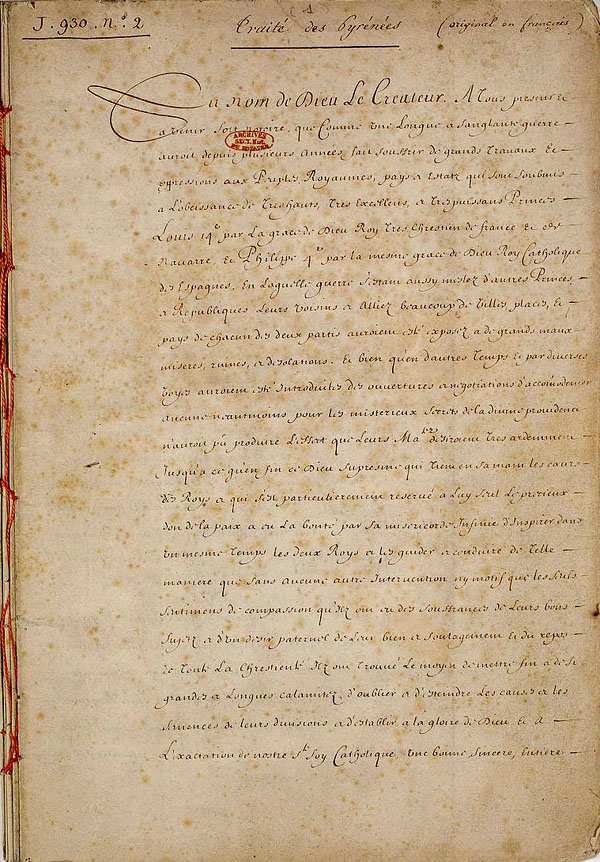 J. 930. N.º 2
1
Traité des Pyrénées
(original en français)
Au Nom de Dieu Le Createur. A Tous presens et
a venir soit notoire, que Comme Une Longue a sanglante guerre
ARCHIVES
SECT. HIST.
DU ROYAUME
auroit depuis plusieurs Années fait souffrir de grands Travaux Et
oppressions aux Peuples, Royaumes, pays a Estatz qui sont soubmis
a L'obeissance de Tres hauts, Tres Excellens, a Tres puissans Princes
Louis 14e par La grace de Dieu Roy Tres Chrestien de france Et de
Navarre, Et Philippe 4e par la mesme grace de Dieu Roy Catholique
des Espagnes, En Laquelle guerre s'estans aussy meslez d'autres Princes
a Republiques Leurs Voisins a Alliez beaucoup de Villes, places, Et
pays de chacun des deux partis auroient esté exposez a de grands maux
miseres, ruines, a desolations. Et bien qu'en d'autres Temps Et par diverses
Voyes auroient esté Introduites des ouvertures a negotiations d'accomodement
aucune neantmoins pour les misterieux Secrets de la divine providence
n'auroit pû produire L'effect que Leurs Ma.tez desiroient Tres ardemment
Jusqu'a ce qu'en fin ce Dieu Supresme qui Tient en sa main les cœurs
des Roys a qui s'est particulierement reservé a Luy Seul Le precieux
don de la paix a eu La bonté par Sa misericorde Infinie d'Inspirer dans
Un mesme Temps les deux Roys a les guider a conduire de Telle
maniere que sans aucune autre Intervention ny motif que les Seuls
Sentimens de compassion qu'Ilz ont eu des Souffrances de Leurs bons
Sujetz a d'un desir paternel de Leur bien a Soulagement Et du repos
de Toute La Chrestienté Ilz ont Trouvé Le moyen de mettre fin a de si
grandes a Longues calamitez, d'oublier a d'esteindre Les causes a les
semences de leurs divisions a d'establir a la gloire de Dieu Et A
L'exaltation de nostre S.te foy Catholique Une bonne, Sincere, Entiere